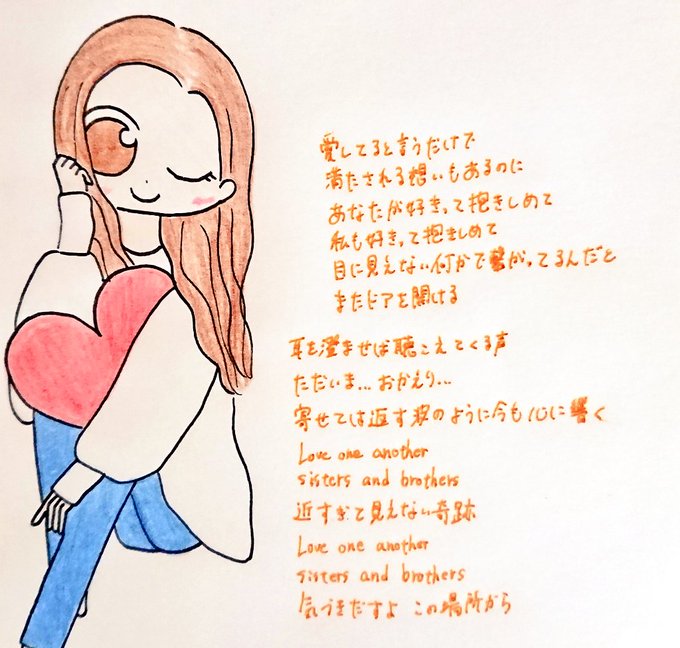 愛してると言うだけで
満たされる想いもあるのに
あなたが好きって抱きしめて
私も好きって抱きしめて
目に見えない何かで繋がってるんだと
またドアを開ける
耳を澄ませば聴こえてくる声
ただいま…おかえり…
寄せては返す波のように今も心に響く
Love one another
sisters and brothers
近すぎて見えない奇跡
Love one another
sisters and brothers
気づきだすよ この場所から